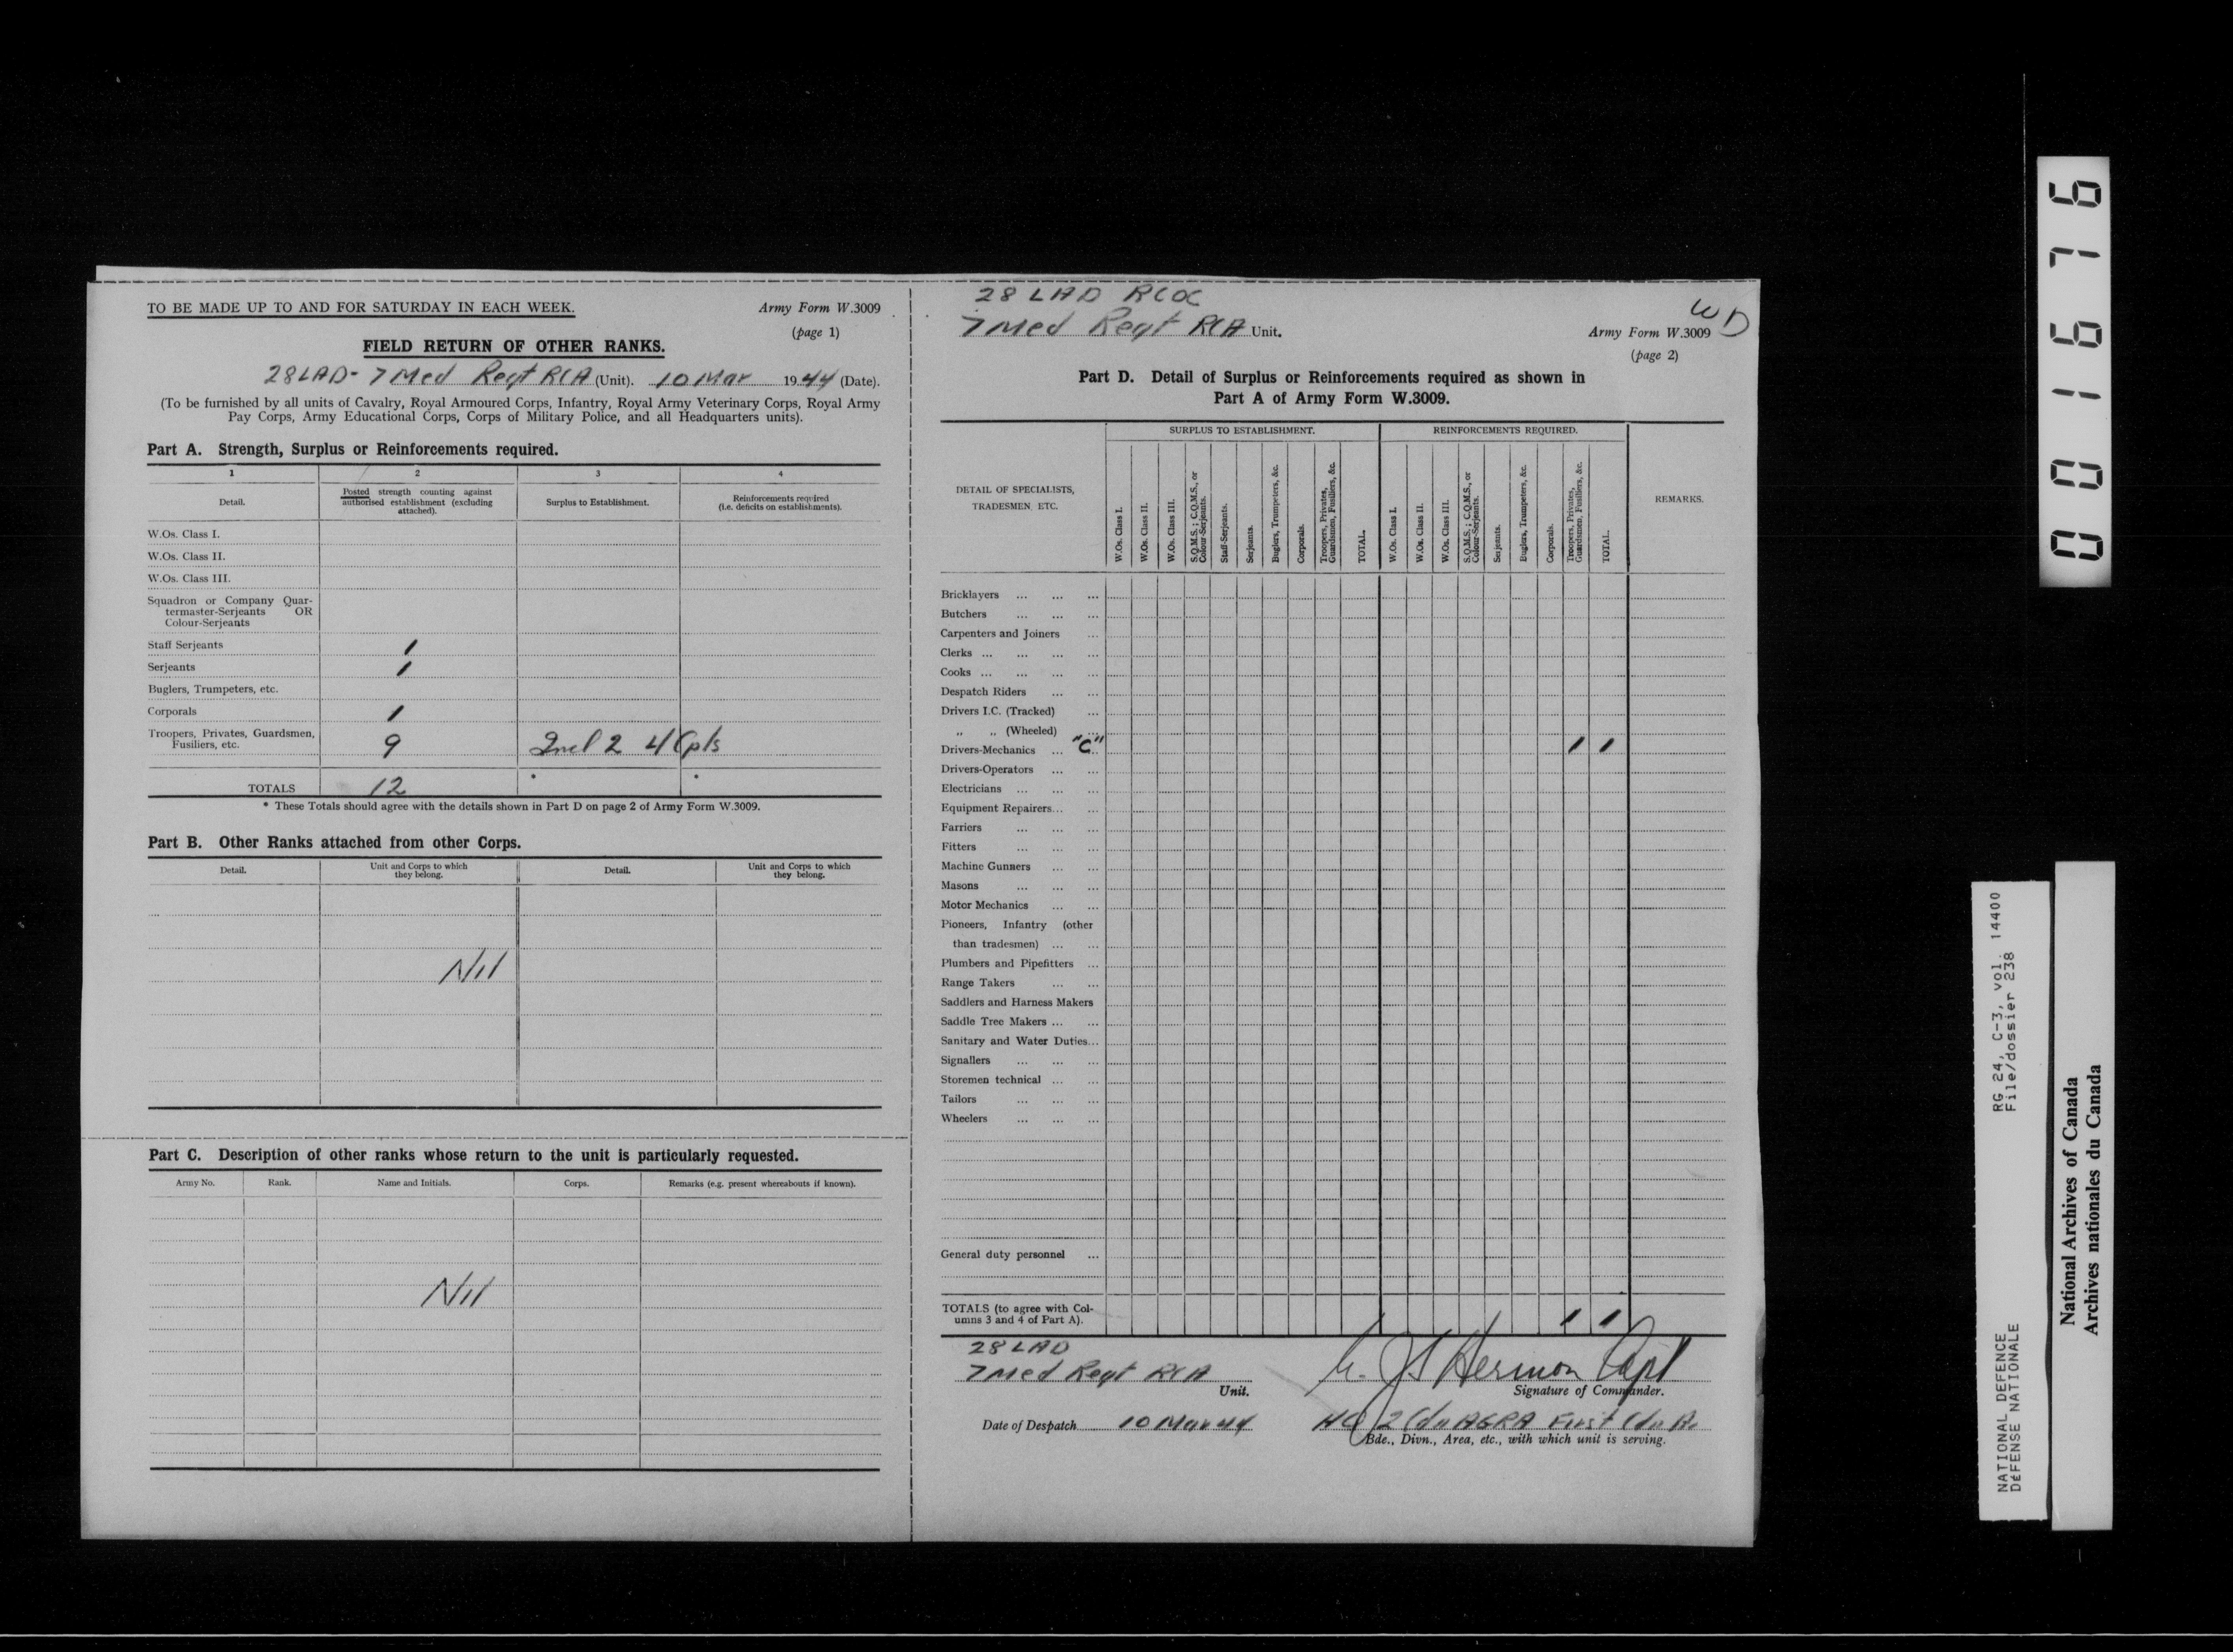 TO BE MADE UP TO AND FOR SATURDAY IN EACH WEEK.
Army Form W.3009
(page 1)
FIELD RETURN OF OTHER RANKS.
28 LAD - 7 Med Regt RCA (Unit). 10 Mar 1944 (Date).
(To be furnished by all units of Cavalry, Royal Armoured Corps, Infantry, Royal Army Veterinary Corps, Royal Army
Pay Corps, Army Educational Corps, Corps of Military Police, and all Headquarters units).
Part A. Strength, Surplus or Reinforcements required.
1 2 3 4
Detail.
Posted strength counting against
authorised establishment (excluding
attached).
Surplus to Establishment.
Reinforcements required
(i.e. deficits on establishments).
W.Os. Class I.
W.Os. Class II.
W.Os. Class III.
Squadron or Company Quar-
termaster-Serjeants OR
Colour-Serjeants
Staff Serjeants 1
Serjeants 1
Buglers, Trumpeters, etc.
Corporals 1
Troopers, Privates, Guardsmen,
Fusiliers, etc. 9 Incl 2 L/Cpls
TOTALS 12 * *
* These Totals should agree with the details shown in Part D on page 2 of Army Form W.3009.
Part B. Other Ranks attached from other Corps.
Detail.
Unit and Corps to which
they belong.
Detail.
Unit and Corps to which
they belong.
Nil
Part C. Description of other ranks whose return to the unit is particularly requested.
Army No. Rank. Name and Initials. Corps. Remarks (e.g. present whereabouts if known).
Nil
28 LAD RCOC
7 Med Regt RCA Unit.
WD
Army Form W.3009
(page 2)
Part D. Detail of Surplus or Reinforcements required as shown in
Part A of Army Form W.3009.
DETAIL OF SPECIALISTS,
TRADESMEN, ETC.
SURPLUS TO ESTABLISHMENT.
W.Os. Class I.
W.Os. Class II.
W.Os. Class III.
S.Q.M.S.; C.Q.M.S., or
Colour-Serjeants.
Staff-Serjeants.
Serjeants.
Buglers, Trumpeters, &c.
Corporals.
Troopers, Privates,
Guardsmen, Fusiliers, &c.
TOTAL.
REINFORCEMENTS REQUIRED.
W.Os. Class I.
W.Os. Class II.
W.Os. Class III.
S.Q.M.S.; C.Q.M.S., or
Colour-Serjeants.
Serjeants.
Buglers, Trumpeters, &c.
Corporals.
Troopers, Privates,
Guardsmen, Fusiliers, &c.
TOTAL.
REMARKS.
Bricklayers ... ... ...
Butchers ... ... ...
Carpenters and Joiners ...
Clerks ... ... ... ...
Cooks ... ... ... ...
Despatch Riders ... ...
Drivers I.C. (Tracked) ...
„ „ (Wheeled) ...
Drivers-Mechanics ... "C" 1 1
Drivers-Operators ... ...
Electricians ... ... ...
Equipment Repairers... ...
Farriers ... ... ...
Fitters ... ... ...
Machine Gunners ... ...
Masons ... ... ...
Motor Mechanics ... ...
Pioneers, Infantry (other
than tradesmen) ... ...
Plumbers and Pipefitters ...
Range Takers ... ...
Saddlers and Harness Makers
Saddle Tree Makers ... ...
Sanitary and Water Duties...
Signallers ... ... ...
Storemen technical ... ...
Tailors ... ... ...
Wheelers ... ... ...
General duty personnel ...
TOTALS (to agree with Col-
umns 3 and 4 of Part A). 1 1
28 LAD
7 Med Regt RCA
Unit.
Hermon Capt
Signature of Commander.
Date of Despatch 10 Mar 44
HQ 2 Cdn AGRA First Cdn
Bde., Divn., Area, etc., with which unit is serving.
001676
RG 24, C-3, vol. 14400
File/dossier 238
NATIONAL DEFENCE
DéFENSE NATIONALE
National Archives of Canada
Archives nationales du Canada